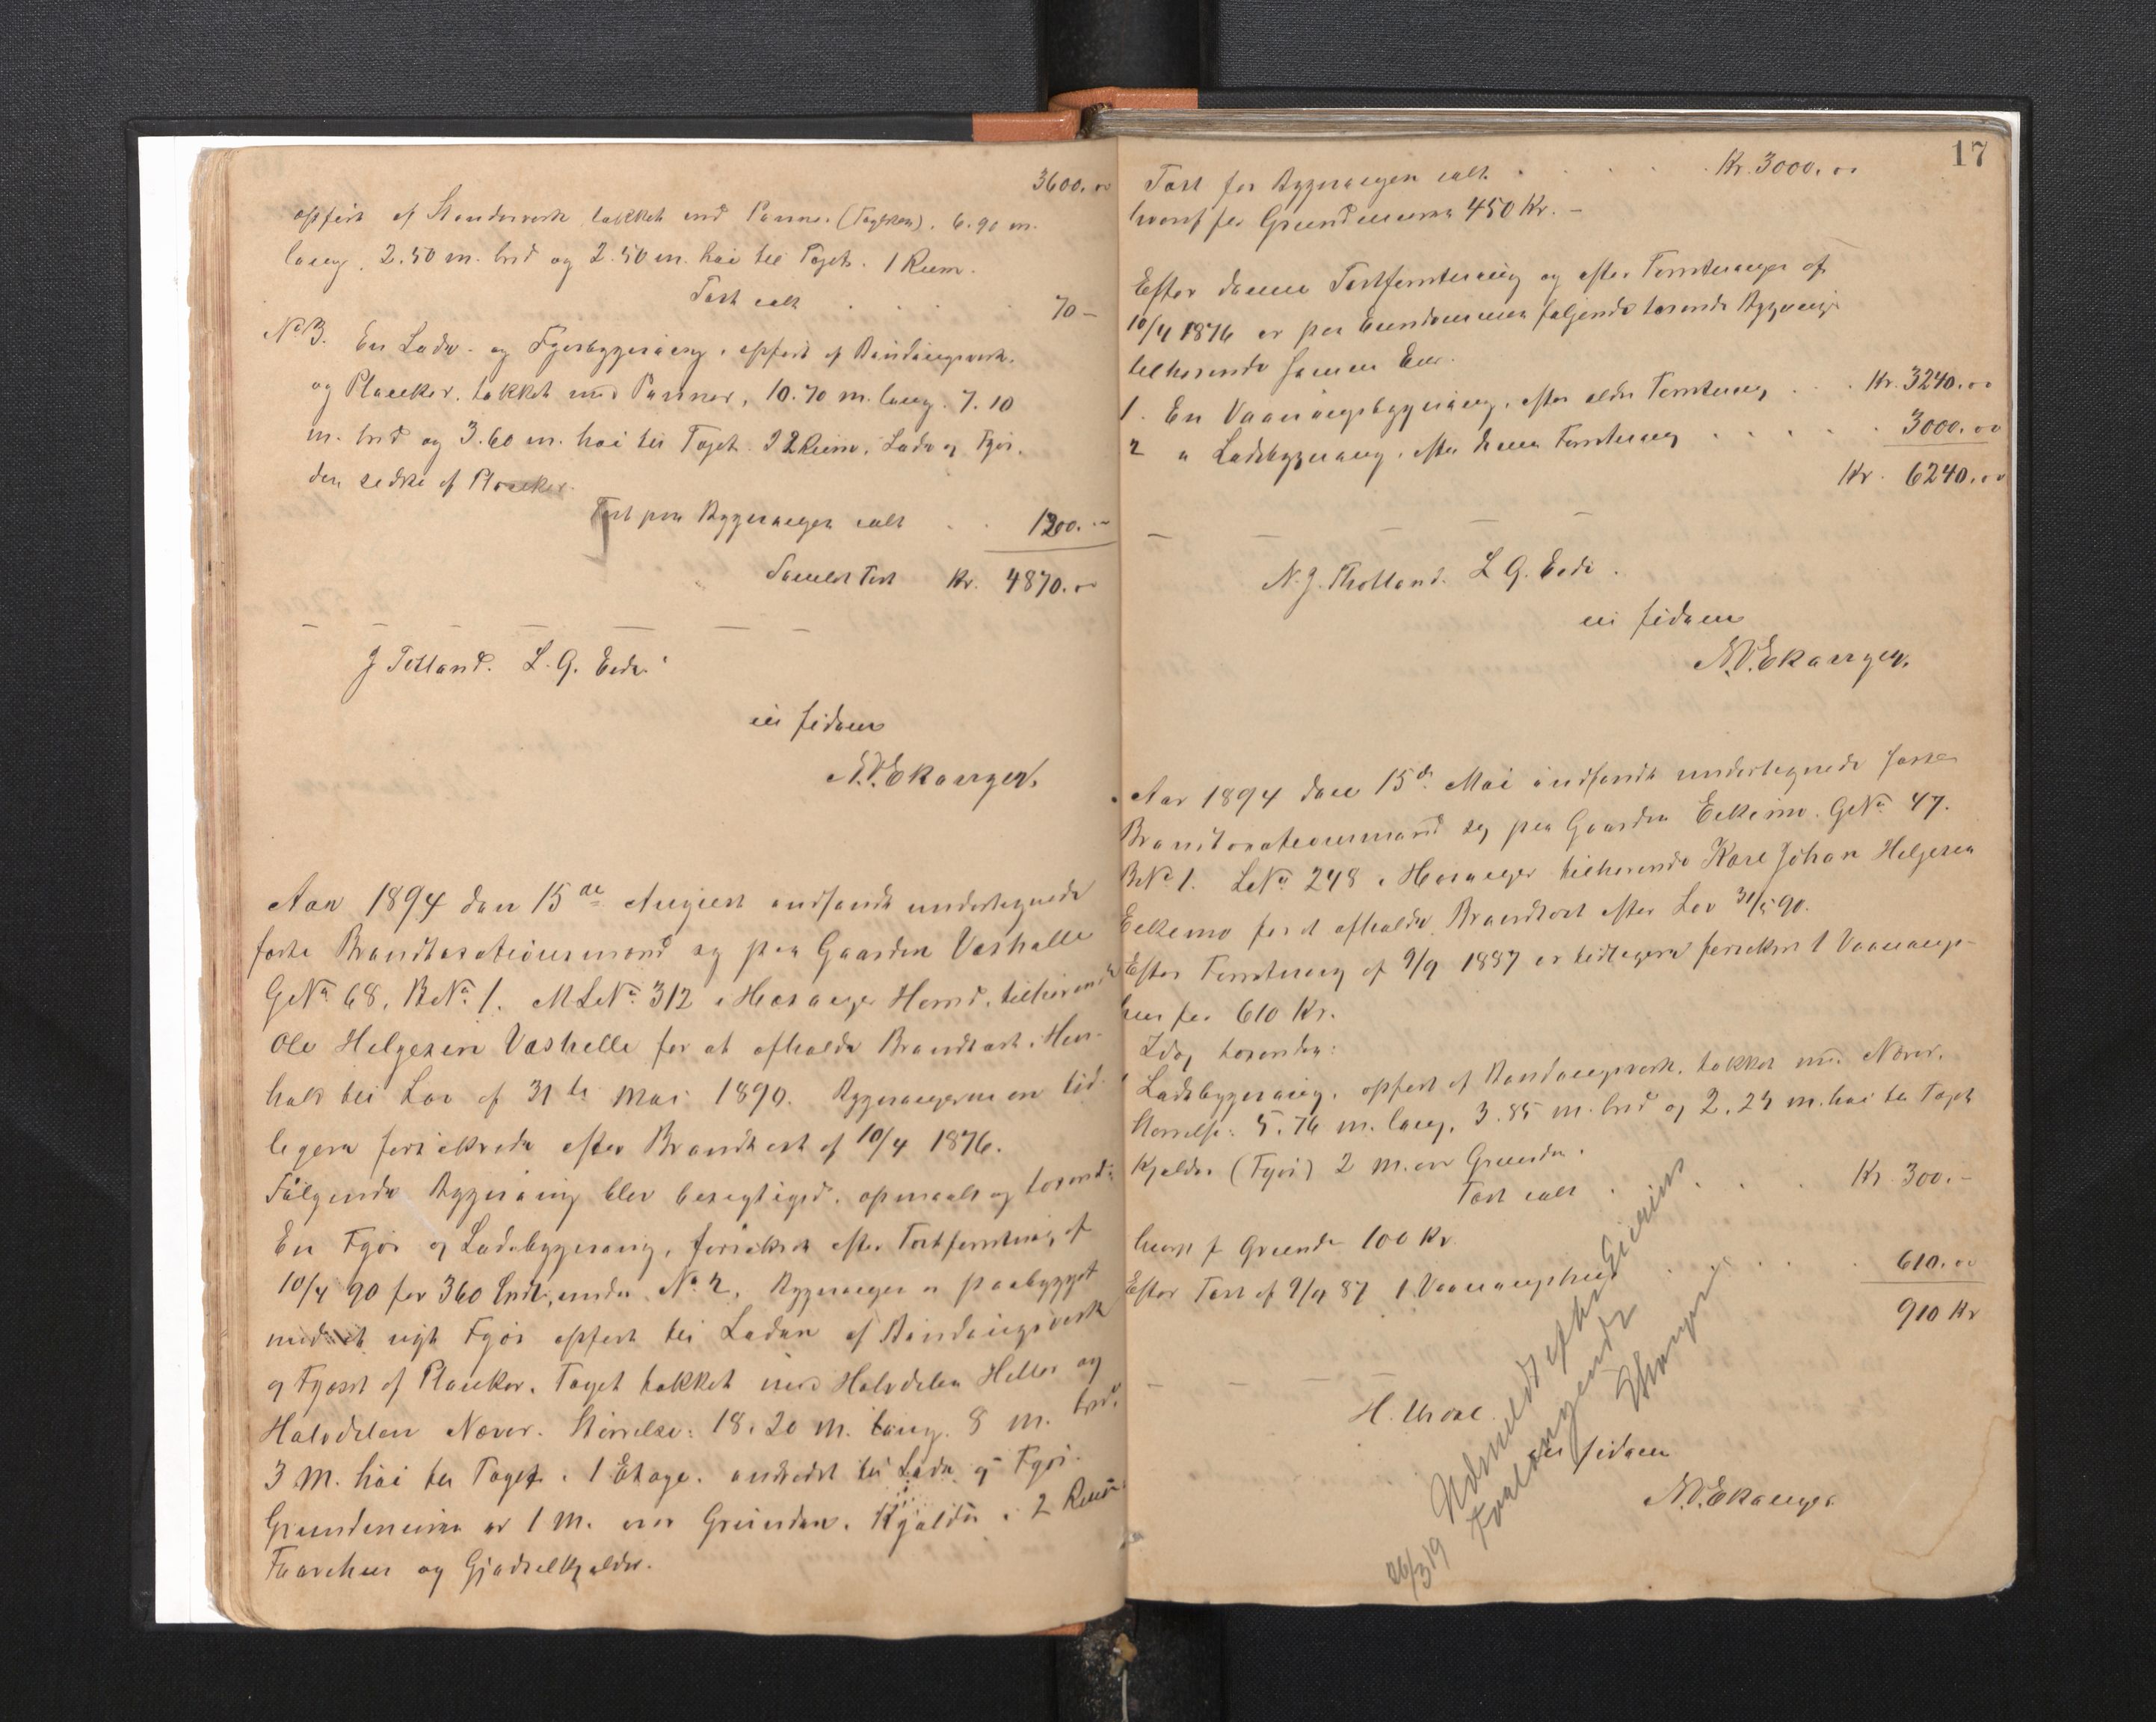 3600.00
opført af Standerverk takket med Panner (Tagsten). 6.90 m.
lang, 2.50 m. bred og 2.50 m. høi til Taget. 1 Rum.
Taxt ialt . . . . . 70 –
No 3. En Lade- og Fjøsbygning, opført af Bindingsverk
og Planker, takket med Panner, 10.70 m. lang. 7.10
m. bred og 3.60 m. høi til Taget. 2 Rum, Lade og Fjøs.
den sidste af Planker.
Taxt paa Bygningen ialt . . 1200. –
Samlet Taxt Kr. 4870.00
J Totland. L. G. Eide.
in fidem
N.N.Ekanger.
Aar 1894 den 15de August indfandt undertegnede
faste Brandtaxationsmænd sig paa Gaarden Vashelle
GNo 68, BNo 1. MLNo 312 i Hosanger Herred, tilhørende
Ole Helgesen Vashelle for at afholde Brandtaxt i Hen-
hold til Lov af 31te Mai 1890. Bygningerne er tid-
ligere forsikrede efter Brandtaxt af 10/4 1876.
Følgende Bygning blev besigtiget, opmaalt og taxeret:
En Fjøs og Ladebygning, forsikret efter Taxtforretning af
10/4 90 for 360 Spd, under No 2. Bygningen er paabygget
med et nyt Fjøs opført til Laden af Bindingsverk
og Fjøset af Planker. Taget takket med Halvdelen Heller og
Halvdelen Næver. Størrelse: 18.20 m. lang. 8 m. bred,
3 m. høi til Taget. 1 Etage. indredet til Lade og Fjøs.
Grundmuren er 1 m. over Grunden. Kjælder i 2 Rum:
Faarehus og Gjødselkjælder.
17
Taxt for Bygningen ialt . . . . Kr. 3000.00
hvoraf for Grundmuren 450 Kr. –
Efter denne Taxtforretning og efter Forretningen af
10/4 1876 er paa Eiendommen følgende taxerede Bygninger
tilhørende samme Eier.
1. En Vaaningsbygning, efter ældre Forretning . . Kr. 3240.00
2 " Ladebygning, efter denne Forretning . . . . . 3000.00
Kr. 6240.00
N. J. Tholland. L G. Eide.
in fidem
N.N.Ekanger.
Aar 1894 den 15de Mai indfandt undertegnede faste
Brandtaxationsmænd sig paa Gaarden Eikemo. GNo 47.
BNo 1. LNo 248 i Hosanger tilhørende Karl Johan Helgesen
Eikemo for at afholde Brandtaxt efter Lov 31/5 90.
Efter Forretning af 9/9 1887 er tidligere forsikret 1 Vaanings-
hus for 610 Kr.
Idag taxeredes:
1 Ladebygning, opført af Bindingsverk, takket med Næver.
Størrelse: 5.76 m. lang, 3.85 m. bred og 2.23 m. høi til Taget
Kjælder (Fjøs) 2 m. over Grunden.
Taxt ialt . . . . Kr. 300. –
hvoraf f Grunden 100 Kr.
Efter Taxt af 9/9 87 1 Vaaningshus . . . . 610.00
910 Kr
H. Uvoll.
in fidem
N.N.Ekanger.
26/3 19 Udmeldt efter Eierens
forlangende
Ekanger